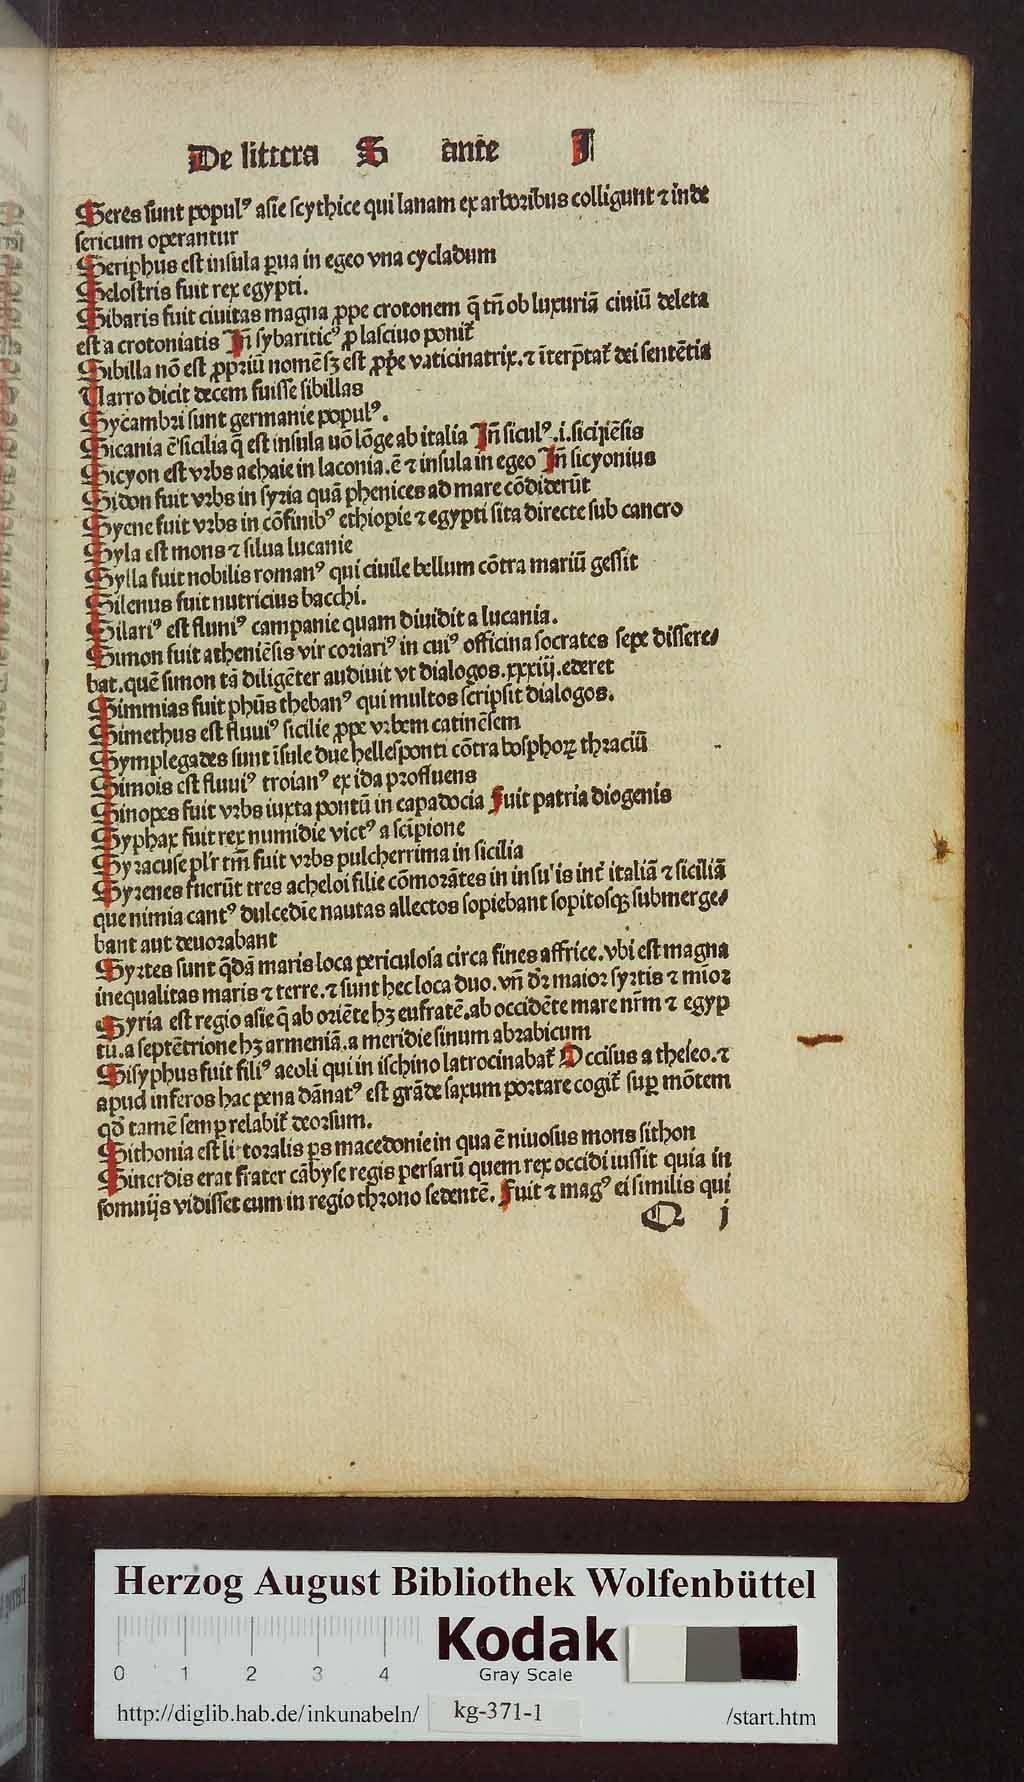 De littera S ante J
Seres sunt populꝰ asie scythice qui lanam ex arboribus colligunt ⁊ inde
sericum operantur
Seriphus est insula ꝑua in egeo vna cycladum
Selostris fuit rex egypti.
Sibaris fuit ciuitas magna ꝓpe crotonem q̄ tn̄ ob luxuriā ciuiū deleta
est a crotoniatis Jn̄ sybariticꝰ ꝓ lasciuo ponit᷑
Sibilla nō est ꝓpriū nomē sꝫ est ꝓpe vaticinatrix. ⁊ īterp̄tat᷑ dei sentētiā
Uarro dicit decem fuisse sibillas
Sycambri sunt germanie populꝰ.
Sicania ē sicilia q̄ est insula nō lōge ab italia Jn̄ siculꝰ .i. siciliēsis
Sicyon est vrbs achaie in laconia. ē ⁊ insula in egeo Jn̄ sicyonius
Sidon fuit vrbs in syria quā phenices ad mare cōdiderūt
Syene fuit vrbs in cōfinibꝰ ethiopie ⁊ egypti sita directe sub cancro
Syla est mons ⁊ silua lucanie
Sylla fuit nobilis romanꝰ qui ciuile bellum cōtra mariū gessit
Silenus fuit nutricius bacchi.
Silariꝰ est fluniꝰ campanie quam diuidit a lucania.
Simon fuit atheniēsis vir coriariꝰ in cuiꝰ officina socrates sepe dissere⸗
bat. quē simon tā diligēter audiuit vt dialogos .xxxiij. ederet
Simmias fuit ph̄us thebanꝰ qui multos scripsit dialogos.
Simethus est fluuiꝰ sicilie ꝓpe vrbem catinēsem
Symplegades sunt īsule due hellesponti cōtra bosphoꝝ thraciū
Simois est fluuiꝰ troianꝰ ex ida profluens
Sinopes fuit vrbs iuxta pontū in capadocia Fuit patria diogenis
Syphax fuit rex numidie victꝰ a scipione
Syracuse pl'r tm̄ fuit vrbs pulcherrima in sicilia
Syrenes fuerūt tres acheloi filie cōmorātes in insulis int᷑ italiā ⁊ siciliā
que nimia cantꝰ dulcedīe nautas allectos sopiebant sopitosqꝫ submerge⸗
bant aut deuorabant
Syrtes sunt q̄dā maris loca periculosa circa fines affrice. vbi est magna
inequalitas maris ⁊ terre. ⁊ sunt hec loca duo. vn̄ dr̄ maior syrtis ⁊ mīor
Syria est regio asie q̄ ab oriēte hꝫ eufratē. ab occidēte mare nr̄m ⁊ egyp
tū. a septētrione hꝫ armeniā. a meridie sinum abrabicum
Sisyphus fuit filiꝰ aeoli qui in ischino latrocinabat᷑ Occisus a theseo. ⁊
apud inferos hac pena dānatꝰ est grāde saxum portare cogit᷑ suꝑ mōtem
qd̄ tamē semꝑ relabit᷑ deorsum.
Sithonia est litoralis ꝑs macedonie in qua ē niuosus mons sithon
Sinerdis erat frater cābyse regis persarū quem rex occidi iussit quia in
somnijs vidisset eum in regio throno sedentē. Fuit ⁊ magꝰ ei similis qui
Q j
Herzog August Bibliothek Wolfenbüttel
0 1 2 3 4
Kodak
Gray Scale
http://diglib.hab.de/inkunabeln/ kg-371-1 /start.htm